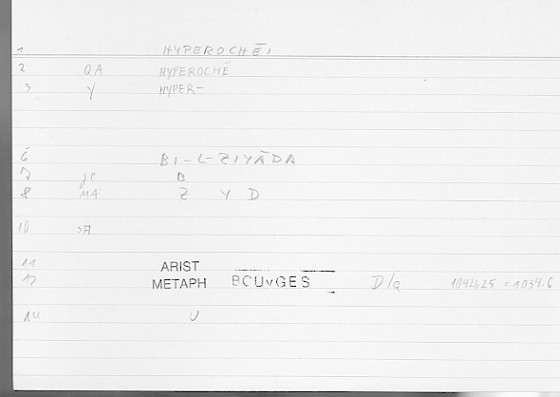 1 HYPEROCHĒI
2 QA HYPEROCHĒ
3 Y HYPER-
6 BI-L-ZIYĀDA
7 B
8 MA Z Y D
10
11 ARIST
12 METAPH BOUYGES D/a 1042b25 = 1034.6
14 U